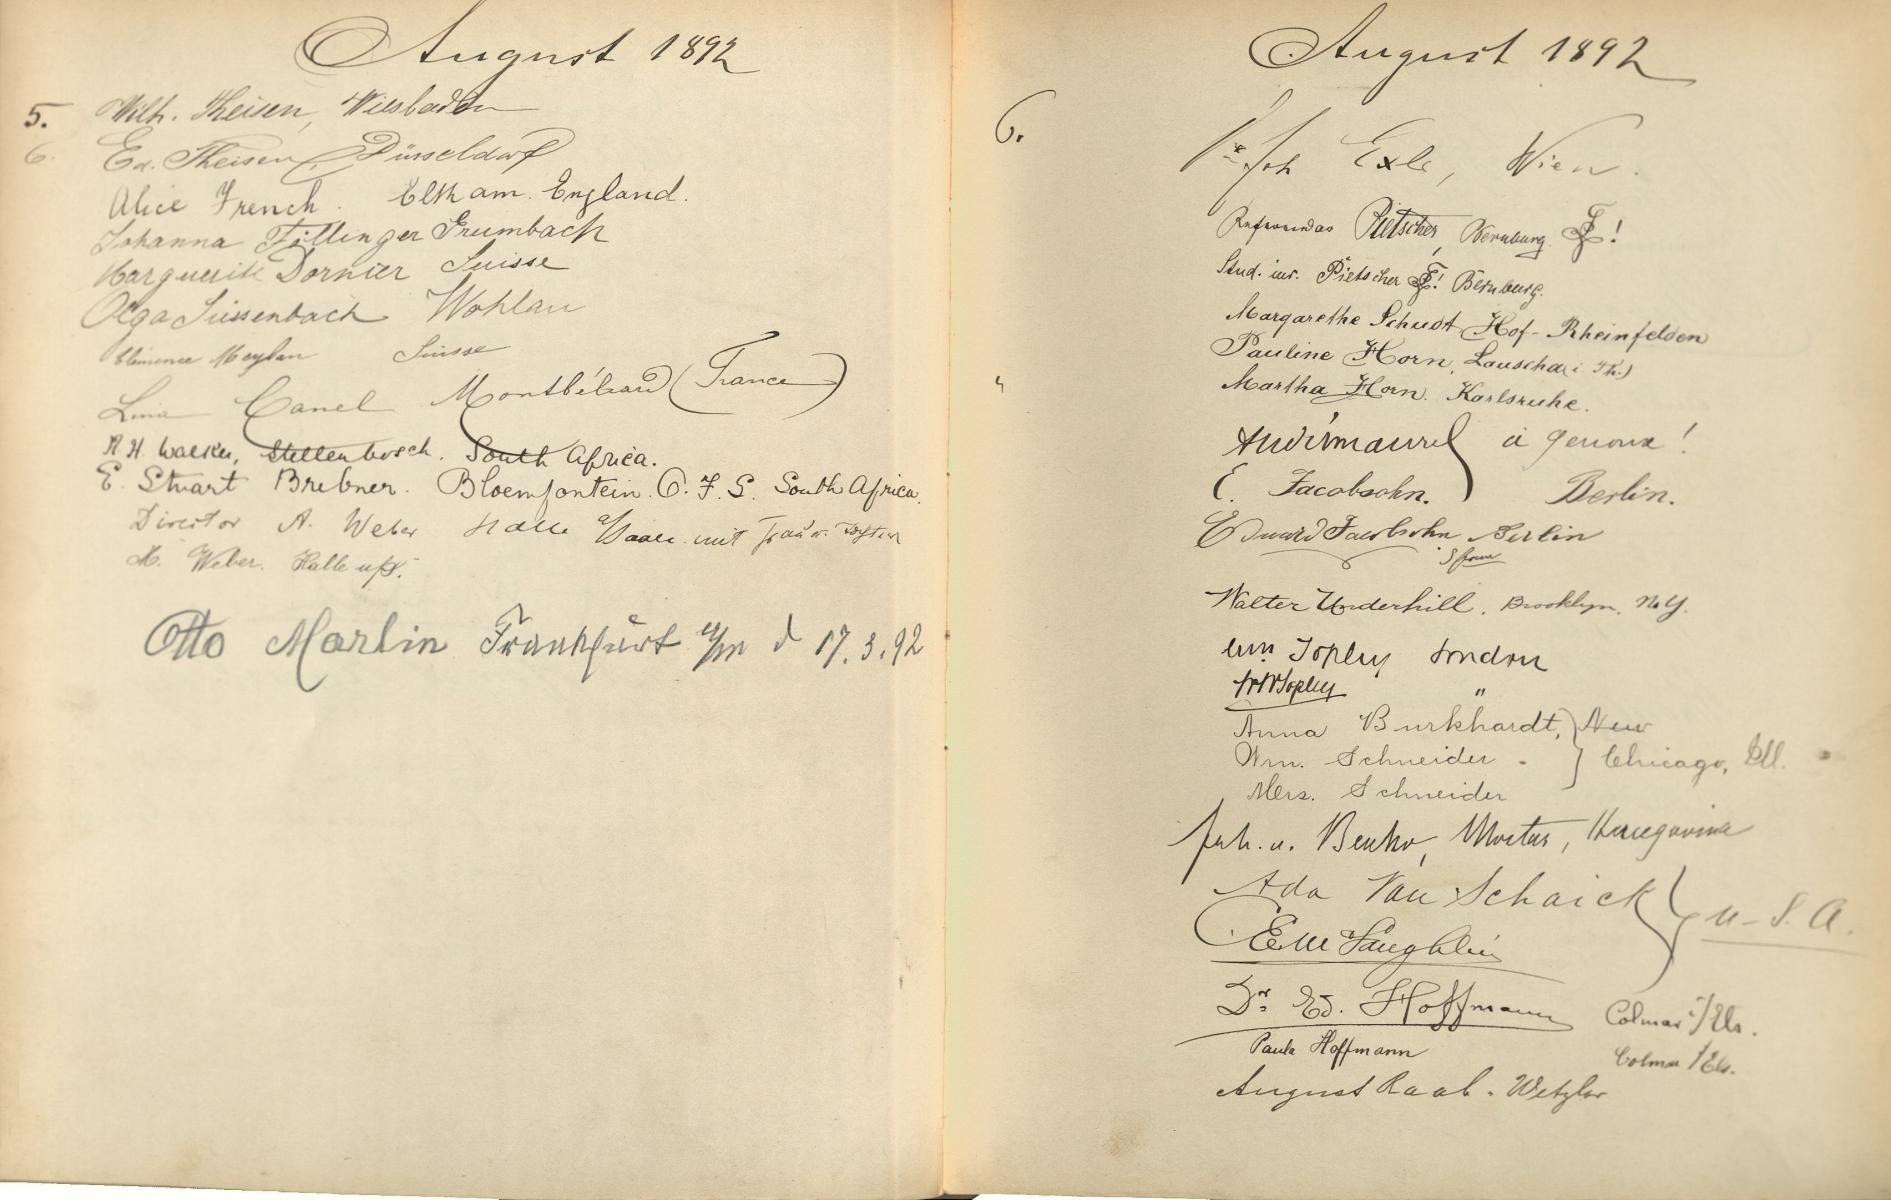 August 1892
5. Wilh. Theisen, Wiesbaden
6. Ed. Theisen Düsseldorf
Alice French. Eltham. England.
Johanna Föllinger Grumbach
Marguerite Dornier Suisse
Olga Süssenbach Wohlau
Clémence Meylan Suisse
Lina Canel Montbéliard (France)
H. Walker, Stellenbosch. South Africa.
E. Stuart Brebner. Bloemfontein. O. F. S. South Africa.
Director A. Weber Halle a/Saale mit Frau u. Tochter
M. Weber. Halle a/S.
Otto Marlin Frankfurt a/M d 17.3.92
August 1892
6.
Dr. Joh Exle, Wien.
Referendar Pietscher, Bernburg.
Stud. iur. Pietscher Bernburg.
Margarethe Schudt Hof-Rheinfelden
Pauline Horn, Lauscha (i. Th.)
Martha Horn. Karlsruhe.
à genoux!
E. Jacobsohn. Berlin.
Eduard Jacobsohn Berlin
Walter Underhill. Brooklyn, N.Y.
Wm Topley London
WW Topley "
Anna Burkhardt, New
Wm. Schneider - Chicago, Ill.
Mrs. Schneider
v. Benko, Mostar, Hercegovina
Ada Van Schaick U-S. A.
Laughlin
Dr. Ed. Hoffmann Colmar i/Els.
Paula Hoffmann Colmar i/Els.
August Raab - Wetzlar